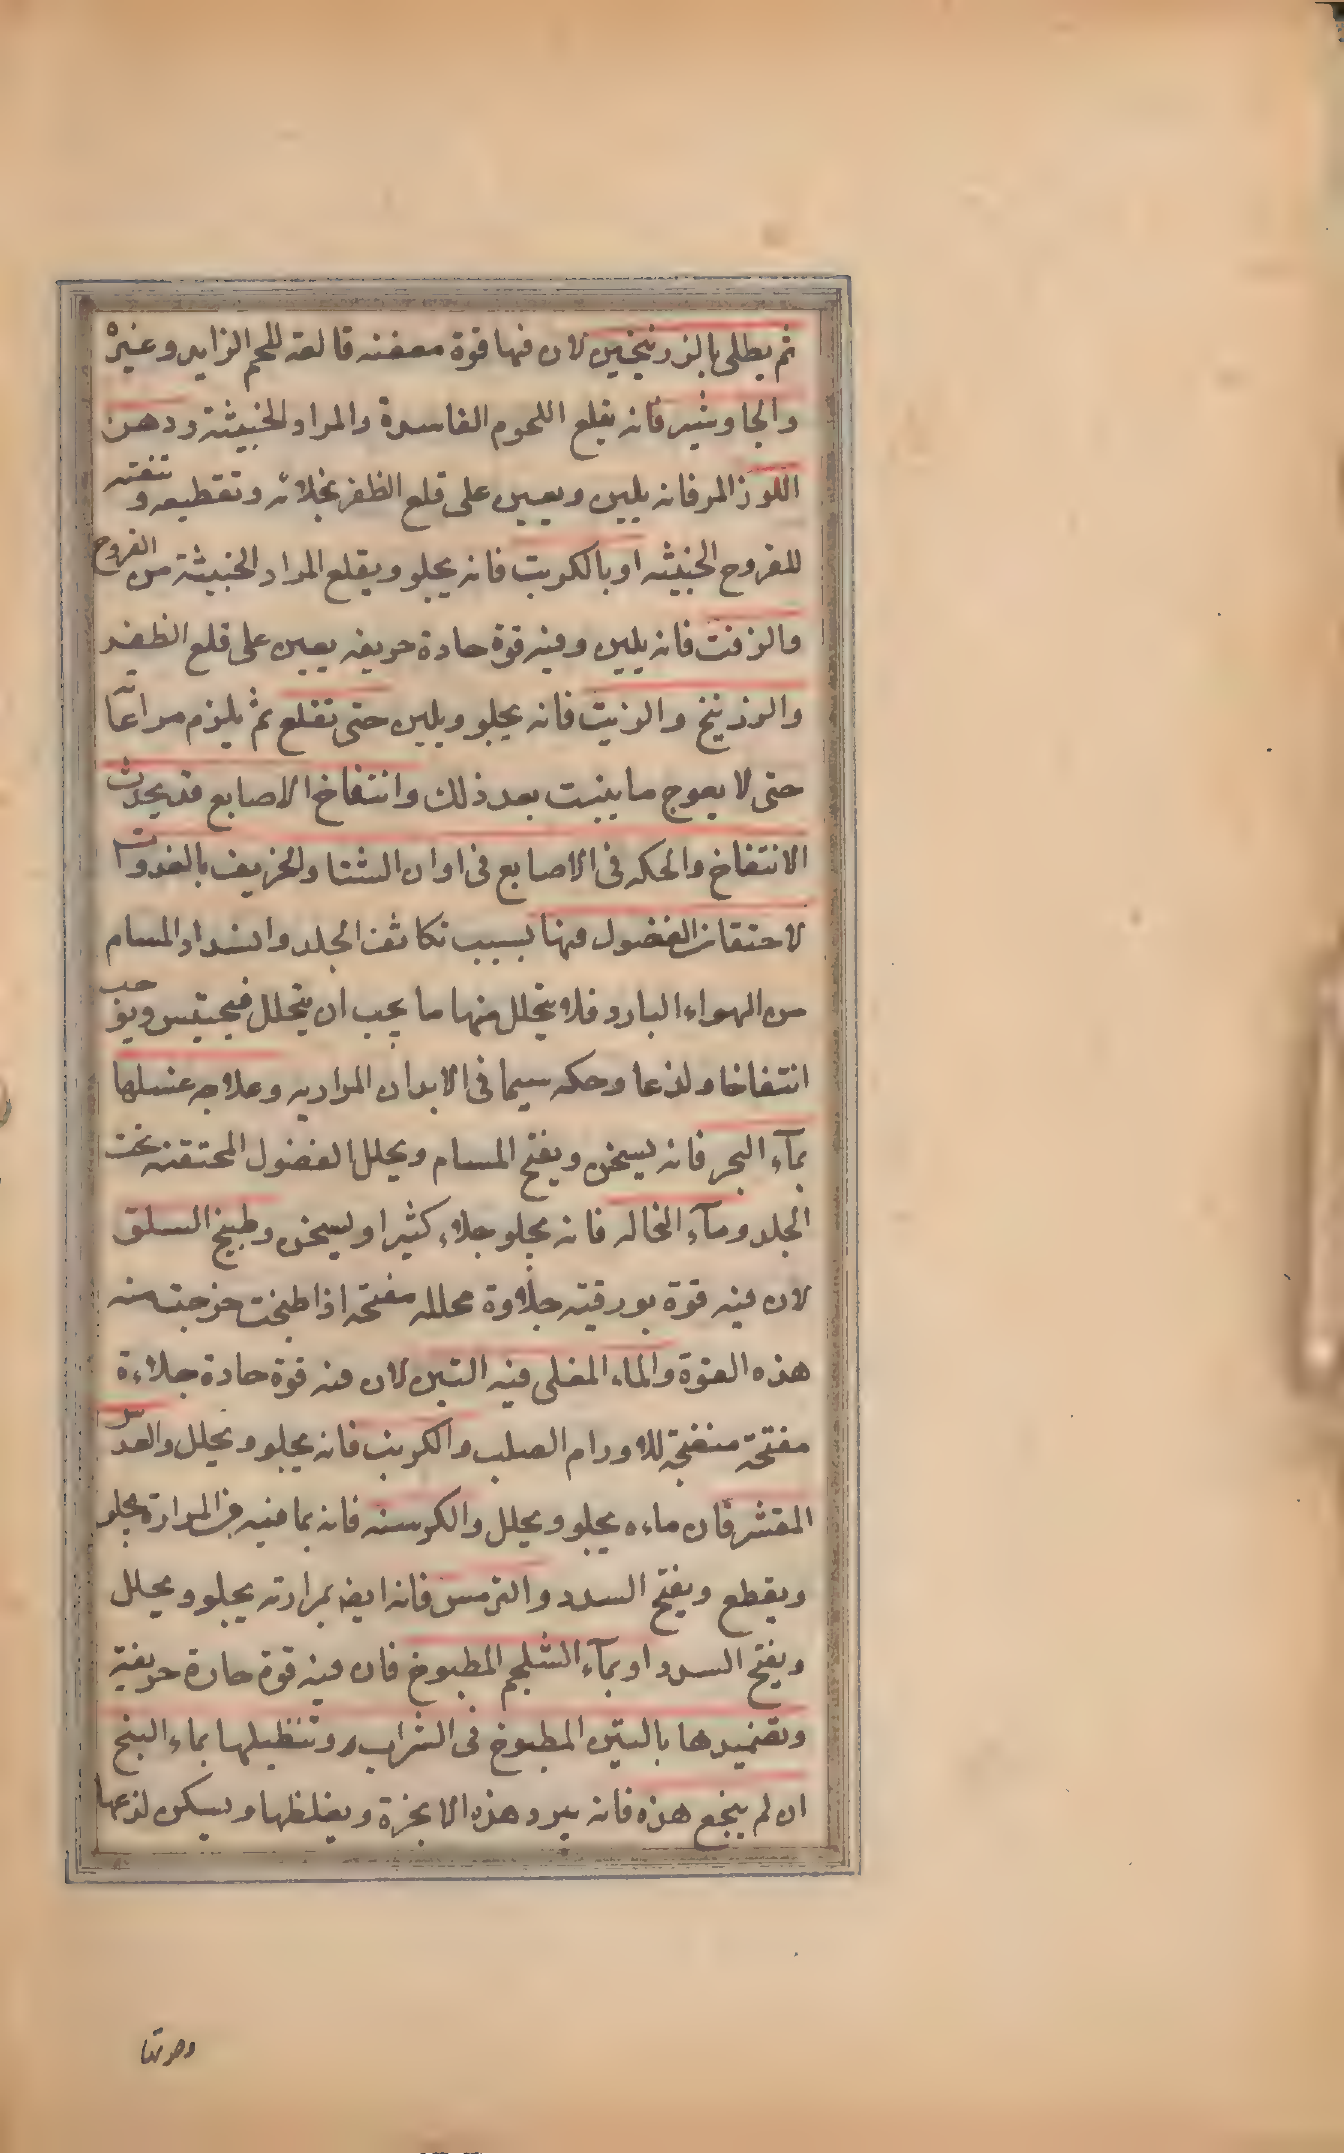 ثم يطلى بالزرنيخين لان فيها قوة معفنه قالعة للحم الزايد وغيره
والجاوشير فانه يقلع اللحوم الفاسدة والمواد الخبيثة ودهن
اللوز المر فانه يلين ويعين على قلع الظفر بجلائه وتقطيعه وتنقيته
للقروح الخبيثه او بالكبريت فانه يجلو ويقلع المواد الخبيثة من القروح
والزفت فانه يلين وفيه قوة حادة حريفه يعين على قلع الظفر
والزرنيخ والزيت فانه يجلو ويلين حتى تقلع ثم يلزم مراعاته
حتى لا يعوج ما ينبت بعد ذلك وانتفاخ الاصابع قد يحدث
الانتفاخ والحكه فى الاصابع فى اوان الشتا والخريف بالغدوات
لاحتقان الفضول فيها بسبب تكاثف الجلد وانسداد المسام
من الهواء البارد فلا يتحلل منها ما يجب ان يتحلل فيحتبس ويوجب
انتفاخا ولذعا وحكه سيما فى الابدان المراديه وعلاجه غسلها
بمآء البحر فانه يسخن ويفتح المسام ويحلل الفضول المحتقنه تحت
الجلد ومآء النخاله فانه يجلو جلاء كثيرا ويسخن وطبيخ السلق
لان فيه قوة بورقيته جلاوة محلله مفتحه اذا طبخت خرجت منه
هذه القوة والماء المغلى فيه التين لان فيه قوة حادة جلاءة
مفتحة منضجة للاورام الصلب والكرنب فانه يجلو ويحلل والعدس
المقشر فان ماءه يجلو ويحلل والكرسنه فانه بما فيه من المرارة يجلو
ويقطع ويفتح السدد والترمس فانه ايضا بمرارته يجلو ويحلل
ويفتح السدد او بمآء الشلجم المطبوخ فان فيه قوة حارة حريفة
وتضميدها بالتين المطبوخ فى الشراب وتنظيلها بماء البنج
ان لم ينجع هذه فانه يبرد هذه الابخرة ويغلظها ويسكن لذعها